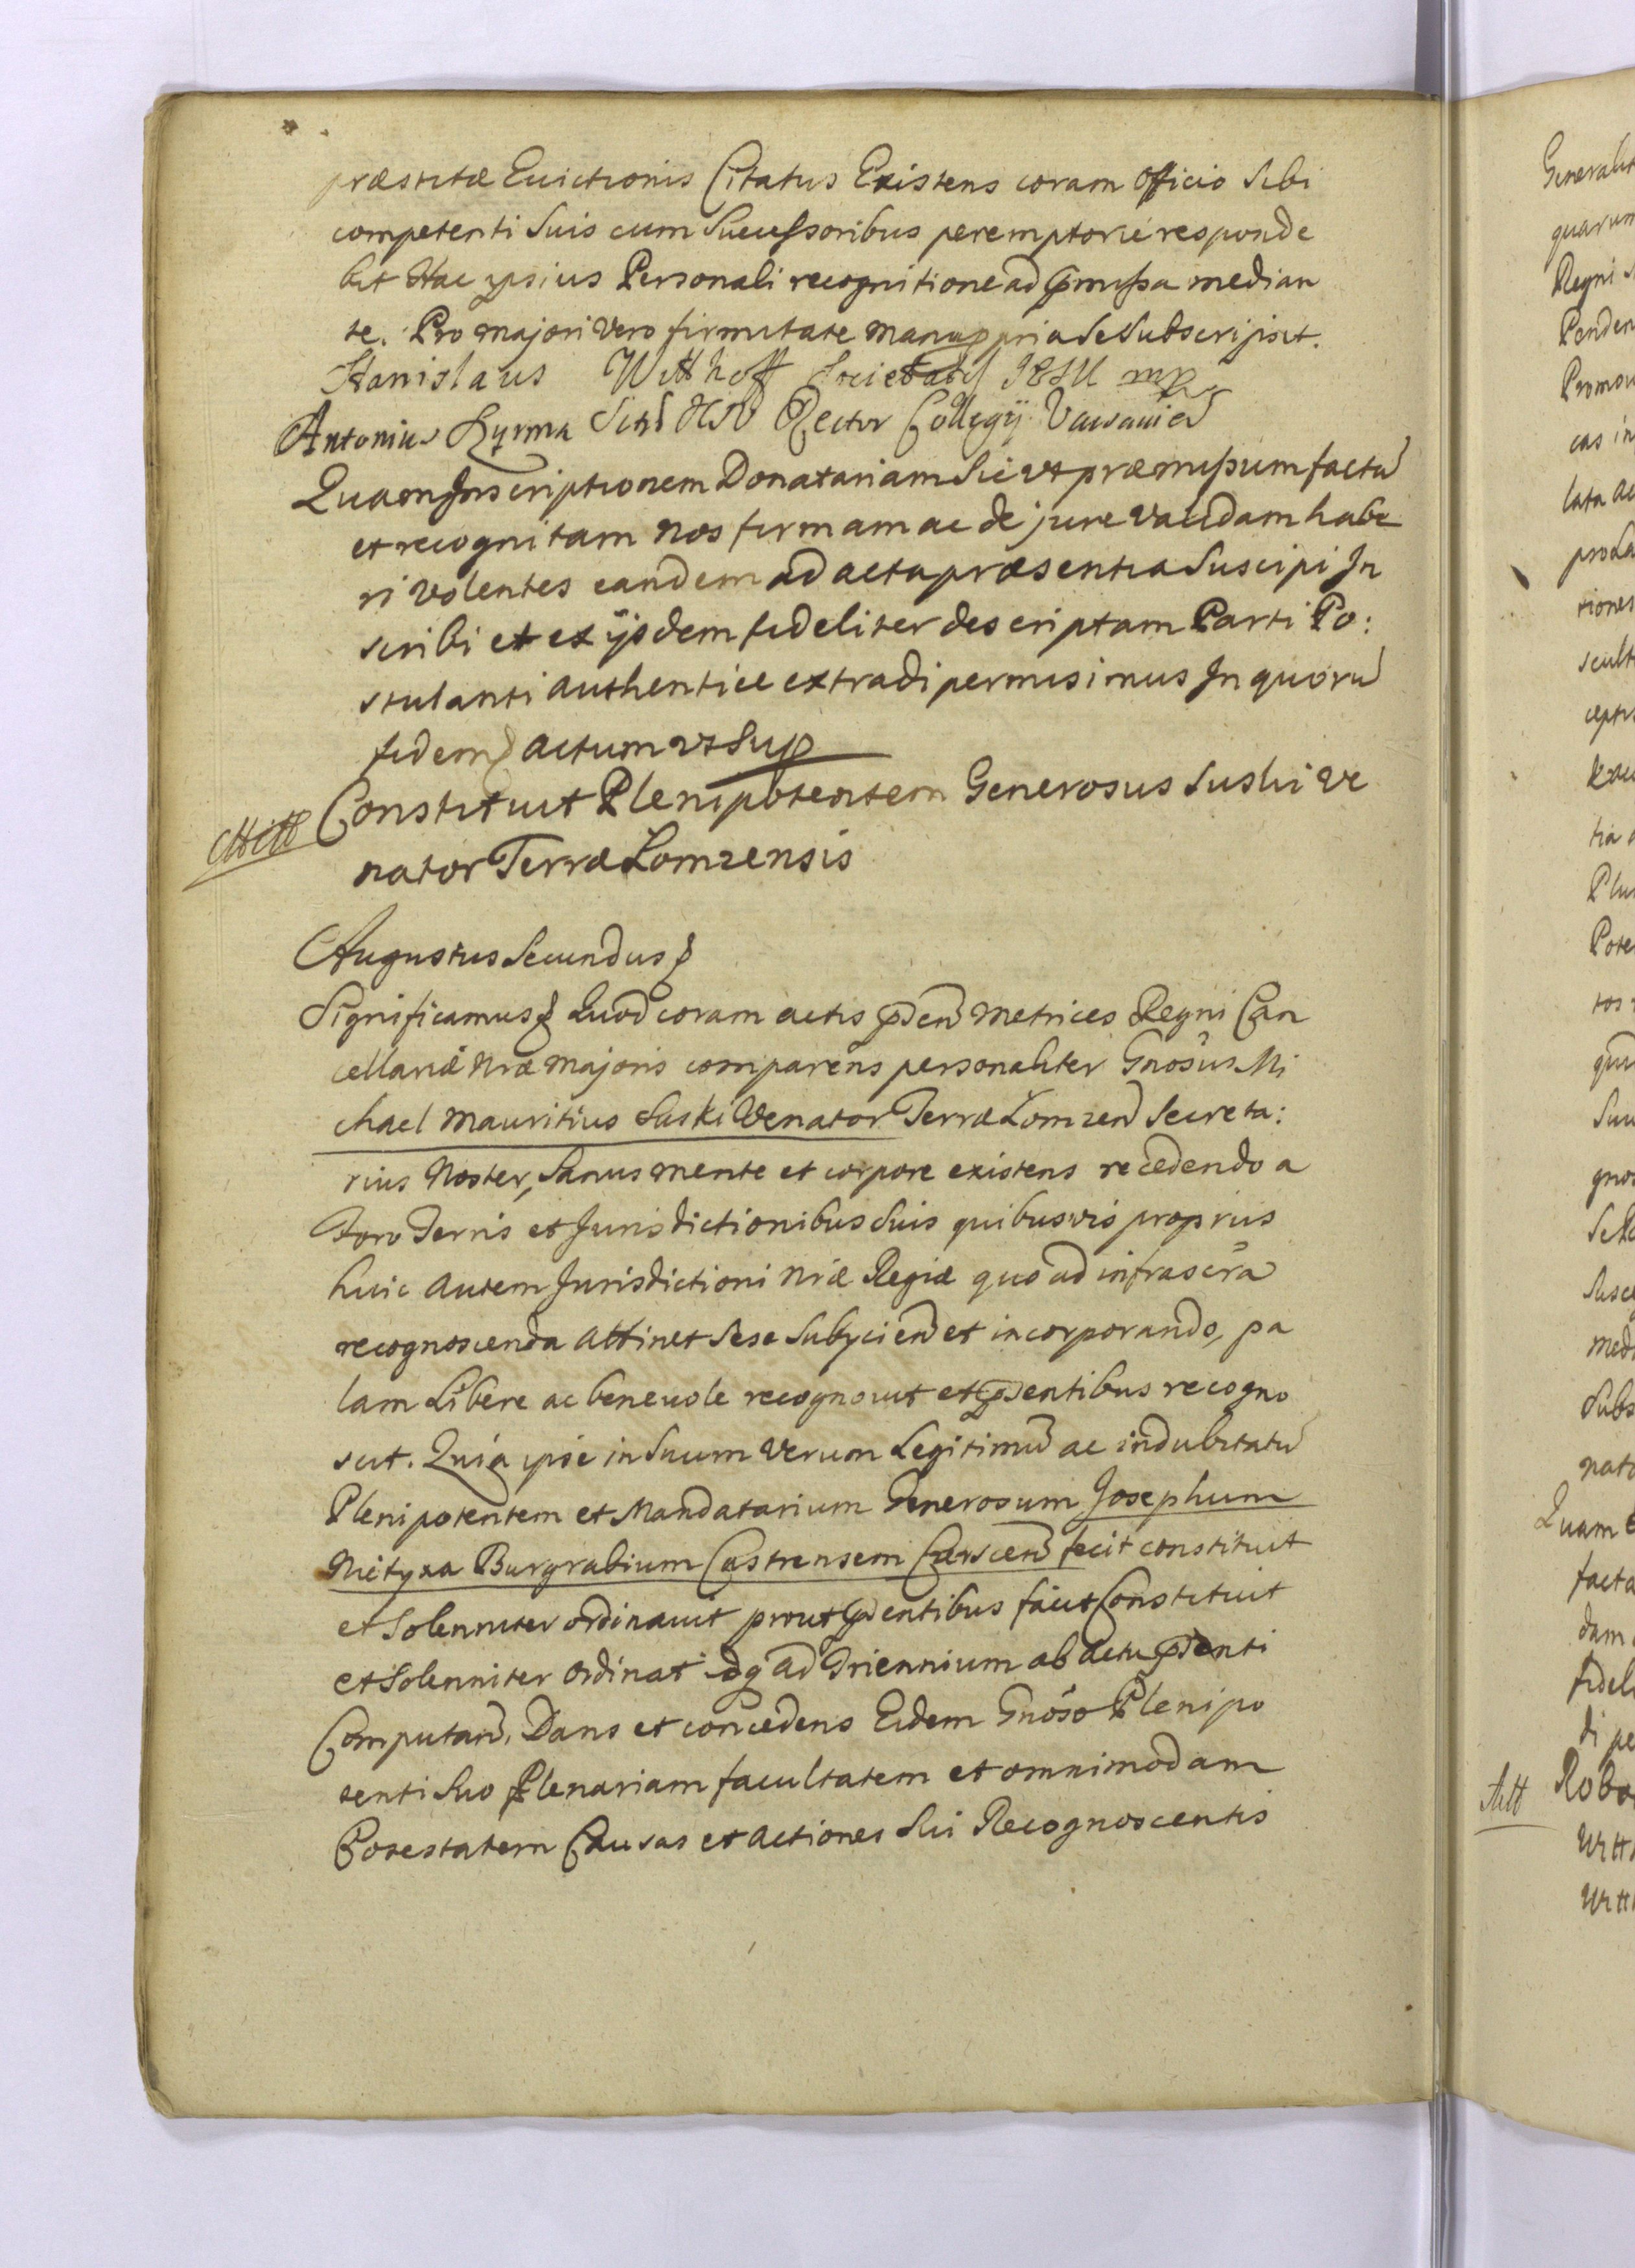 præstitæ Euictionis Citatus Existens coram Officio Sibi
competenti Suis cum Successoribus peremptorie responde
bit Hac ipsius Personali recognitione ad pmissa median
te. Pro majori Vero firmitate manu ppria Se Subscripsit.
Stanislaus Witthoff Societatis JESU mp
Antonius Rector Collegij
Quam Inscriptionem Donatariam Sic ut præmissum factā
et recognitam Nos firmam ac de jure Validam habe
ri Volentes eandem ad acta præsentia Suscipi In
scribi et ex ijsdem fideliter descriptam Parti Po:
stulanti Authentice extradi permisimus In quorū
fidem Actum ut Sup
Constituit Plenipotentem Generosus Suski Ve
nator Terræ Lomzensis
Augustus Secundus
Significamus Quod coram actis pden Metrices Regni Can
cellariæ Nræ Majoris comparens personaliter Gnosus Mi
chael Mauritius Suski Venator Terræ Lomzen Secreta:
rius Noster, Sanus mente et corpore existens recedendo a
Foro Terris et Jurisdictionibus Suis quibusvis proprius
huic Autem Jurisdictioni Nræ Regiæ quo ad infrascra
recognoscenda Attinet Sese Subyciend et incorporando, pa
lam Libere ac beneuole recognouit et pdentibus recogno
scit. Quia ipse in Suum Verum Legitimū ac indubitatū
Plenipotentem et Mandatarium Generosum Josephum
Burgrabium Castrensem fecit constituit
et Solenniter ordinauit prout pdentibus facit Constituit
et Solenniter Ordinat idq ad Triennium ab Actu pdenti
Computand. Dans et concedens Eidem Gnoso Plenipo
tenti Suo Plenariam facultatem et omnimodam
Potestatem Causas et Actiones Sui Recognoscentis